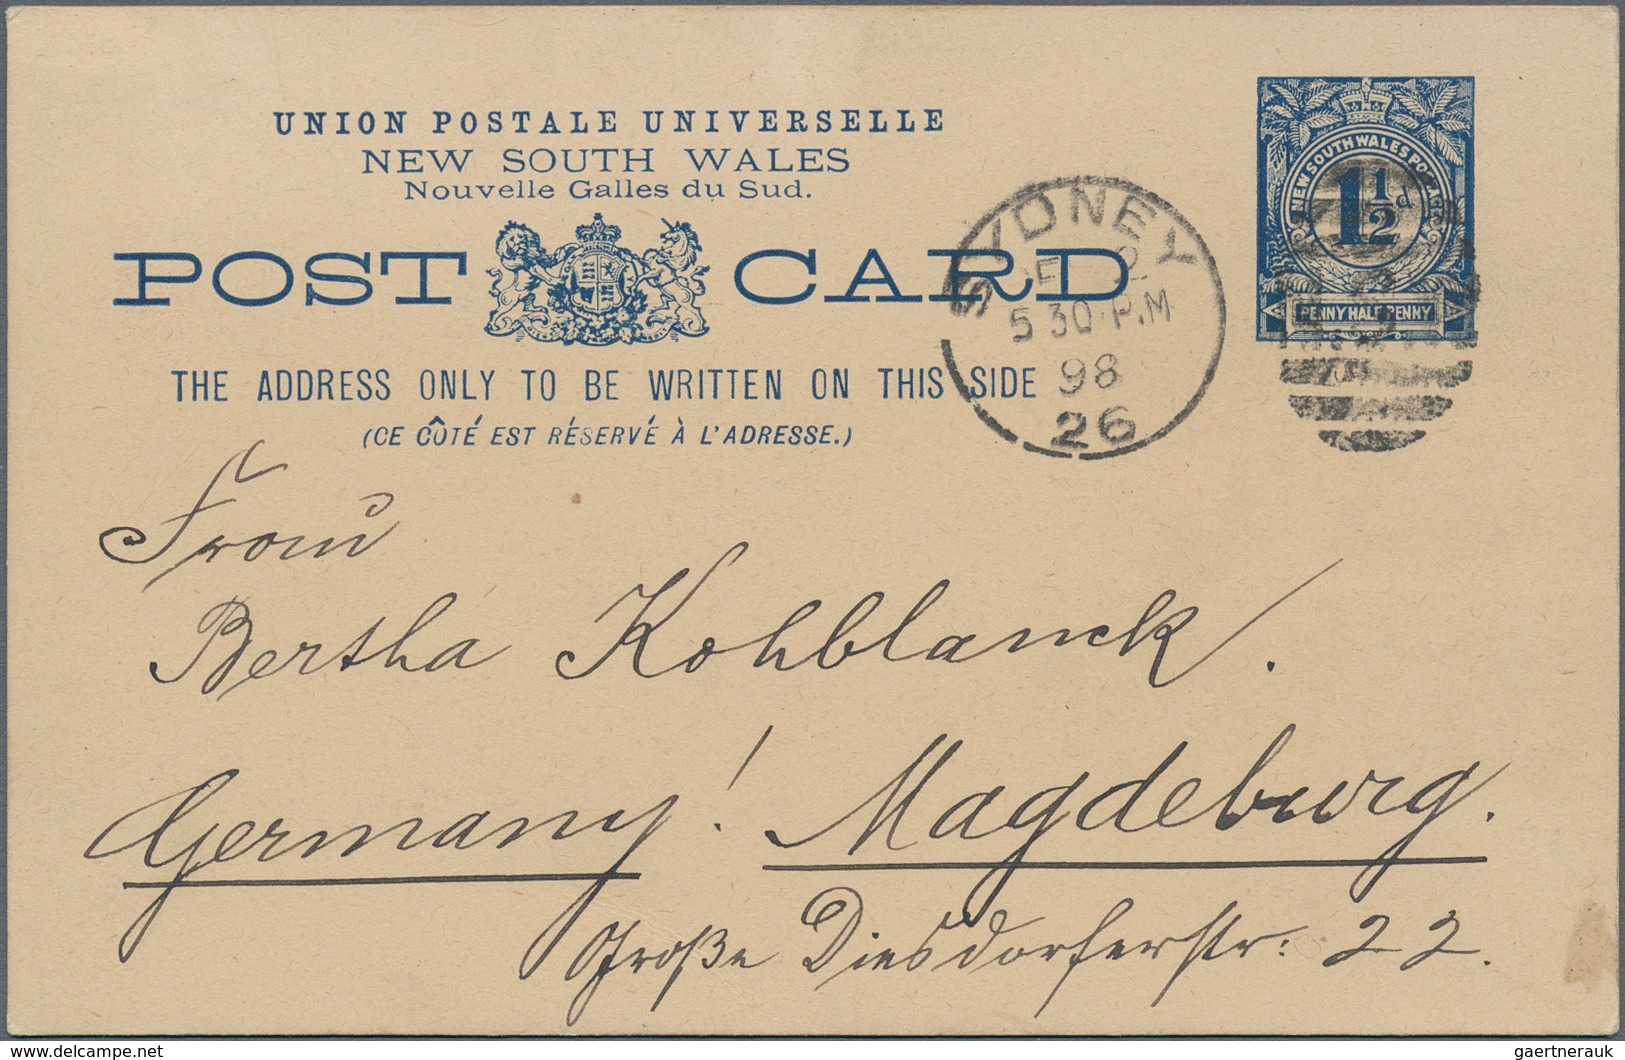 UNION POSTALE UNIVERSELLE
NEW SOUTH WALES
Nouvelle Galles du Sud.
POST CARD
THE ADDRESS ONLY TO BE WRITTEN ON THIS SIDE
(CE CÔTÉ EST RÉSERVÉ À L'ADRESSE.)
NEW SOUTH WALES
1½d
PENNY HALF PENNY
SYDNEY
5 30 P.M
98
26
From
Bertha Kohblanck.
Germany! Magdeburg.
Große Diesdorferstr: 22.
www.delcampe.net
gaertnerauk